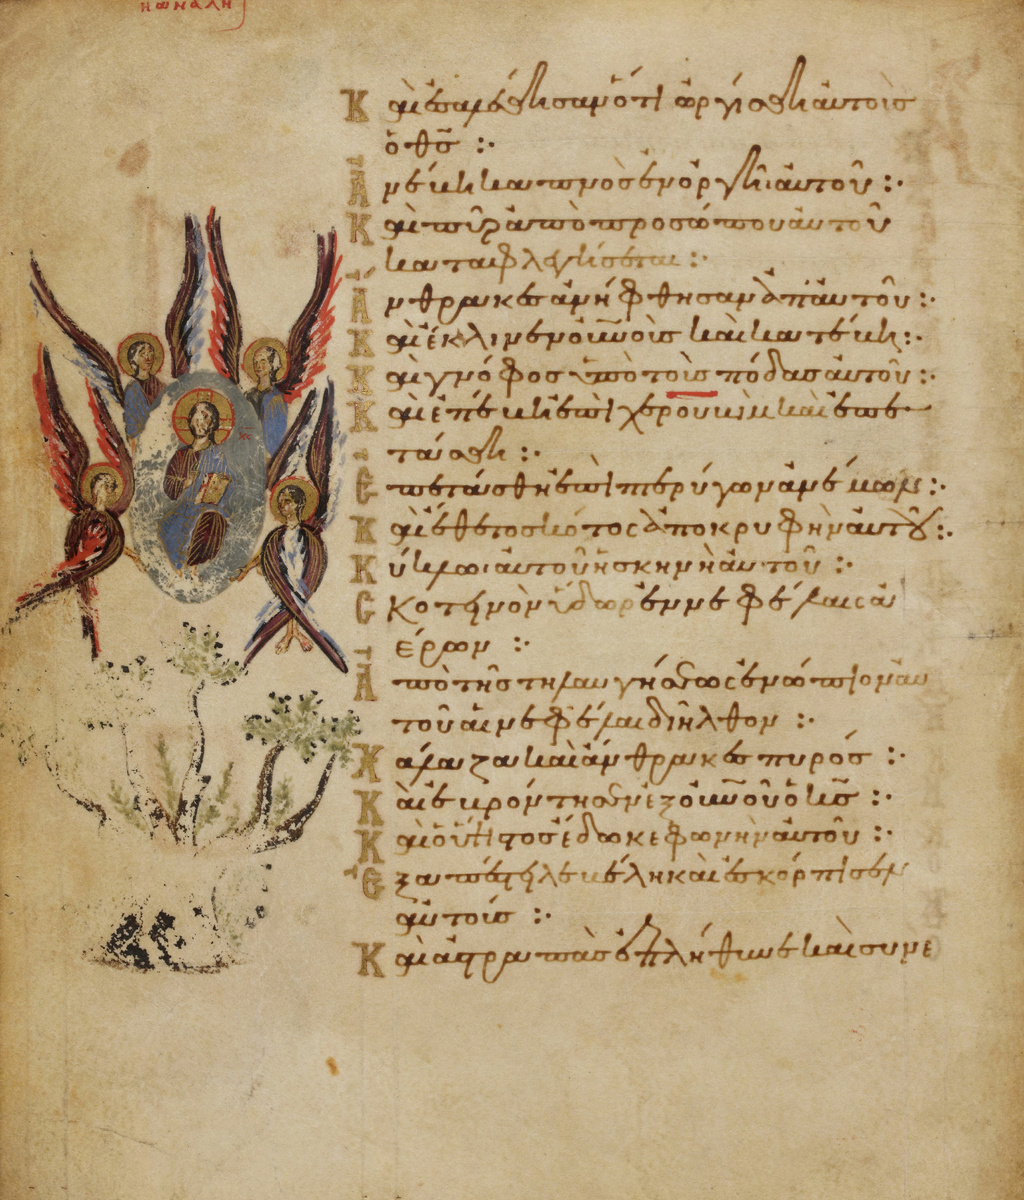 Καὶ ἐσαλεύθησαν ὅτι ὠργίσθη αὐτοῖς
ὁ θ̅ς̅ :·
Ἀνέβη καπνὸς ἐν ὀργῇ αὐτοῦ :·
Καὶ πῦρ ἀπὸ προσώπου αὐτοῦ
καταφλεγήσεται :·
Ἄνθρακες ἀνήφθησαν ἀπ' αὐτοῦ :·
Καὶ ἔκλινεν οὐ̅ν̅οὺς καὶ κατέβη :·
Καὶ γνόφος ὑπὸ τοὺς πόδας αὐτοῦ :·
Καὶ ἐπέβη ἐπὶ χερουβὶμ καὶ ἐπε
τάσθη :·
Ἐπετάσθη ἐπὶ πτερύγων ἀνέμων :·
Καὶ ἔθετο σκότος ἀποκρυφὴν αὐτοῦ :·
Κύκλῳ αὐτοῦ ἡ σκηνὴ αὐτοῦ :·
Σκοτεινὸν ὕδωρ ἐν νεφέλαις ἀ
έρων :·
Ἀπὸ τῆς τηλαυγήσεως ἐνώπιον αὐ
τοῦ αἱ νεφέλαι διῆλθον :·
Χάλαζα καὶ ἄνθρακες πυρός :·
Καὶ ἐβρόντησεν ἐξ οὐ̅ν̅οῦ ὁ κ̅ς̅ :·
Καὶ ὁ ὕψιστος ἔδωκε φωνὴν αὐτοῦ :·
Ἐξαπέστειλε βέλη καὶ ἐσκόρπισεν
αὐτούς :·
Καὶ ἀστραπὰς ἐπλήθυνε καὶ συνε